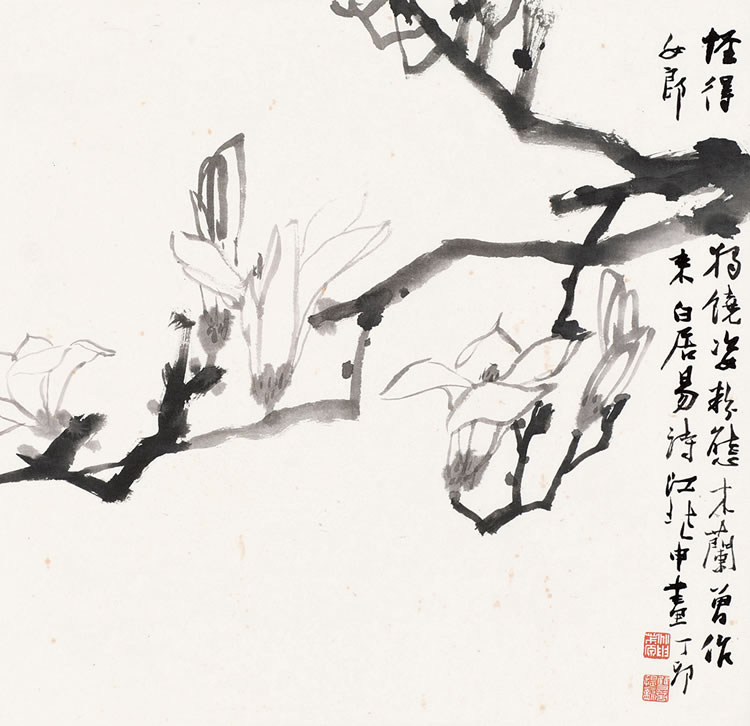 怪得独饒姿粉態木蘭曾作
女郎来白居易詩江兆申畫丁卯